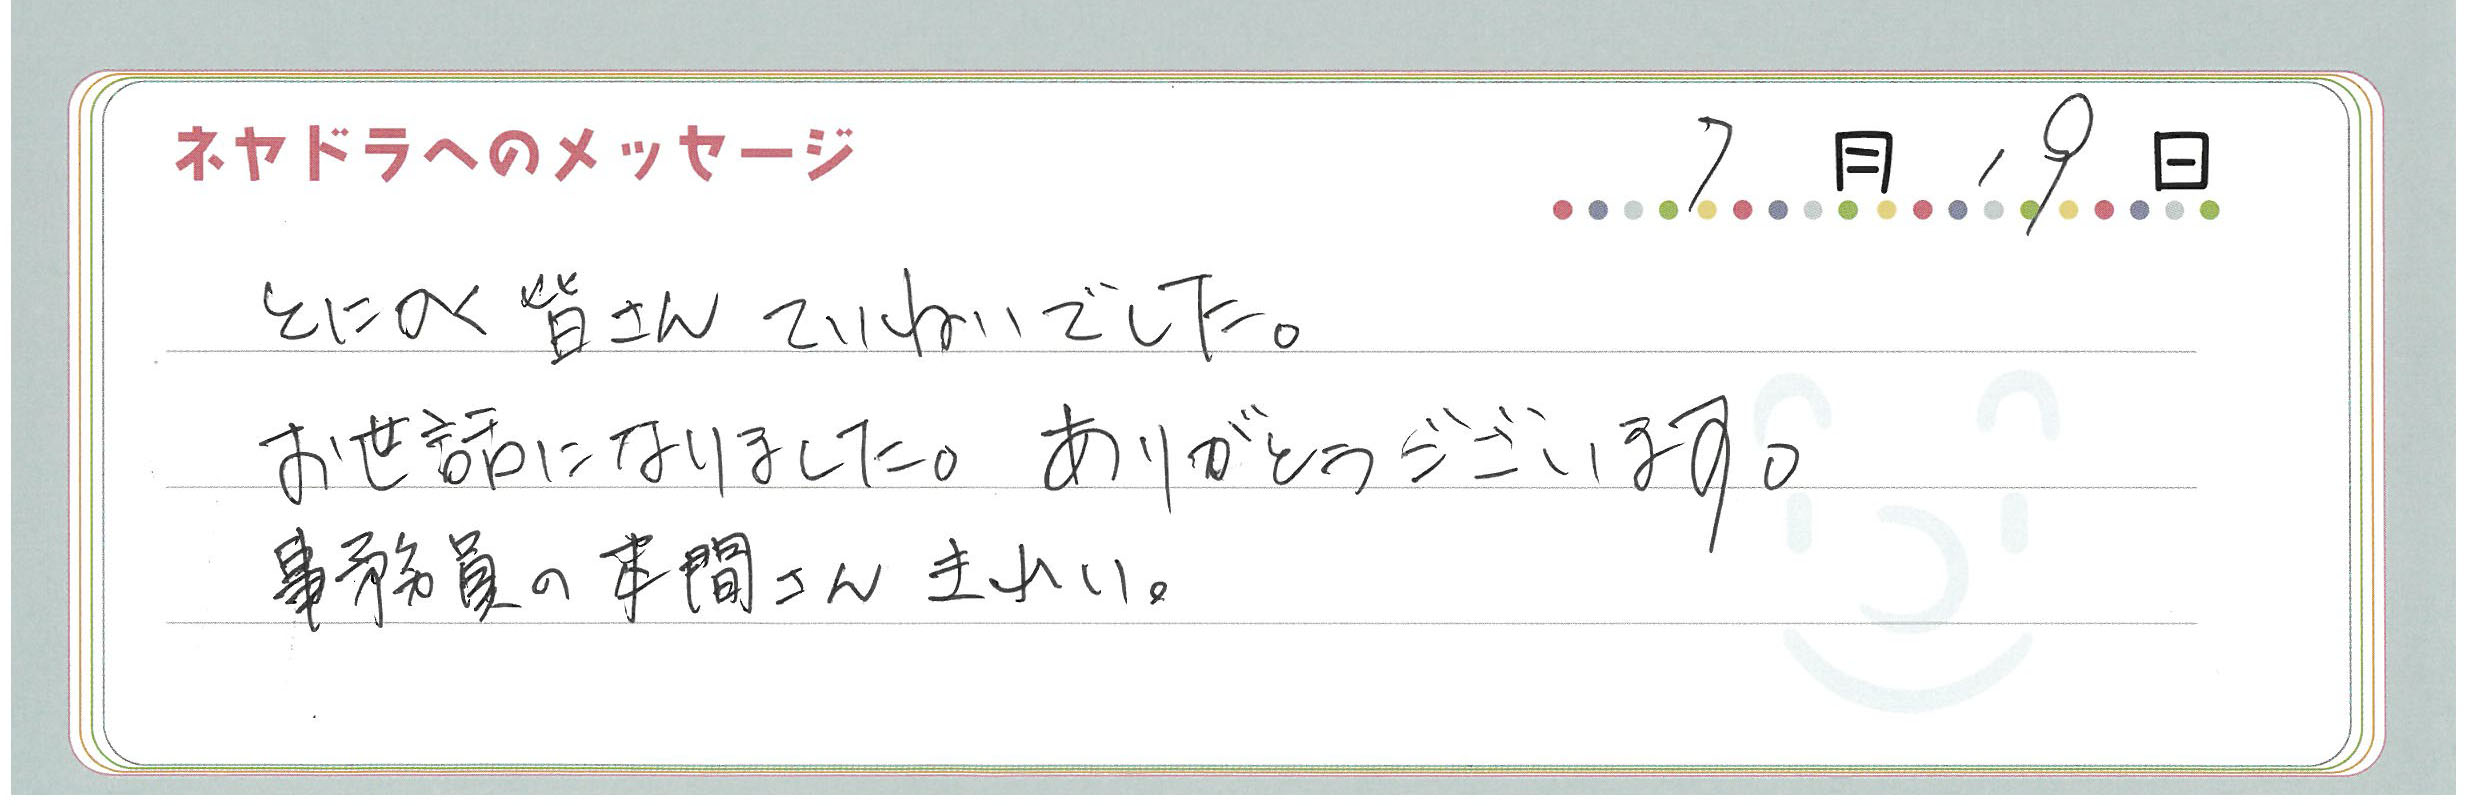 ネヤドラへのメッセージ 7月19日
とにかく皆さん ていねいでした。
お世話になりました。ありがとうございます。
事務員の本間さん きれい。